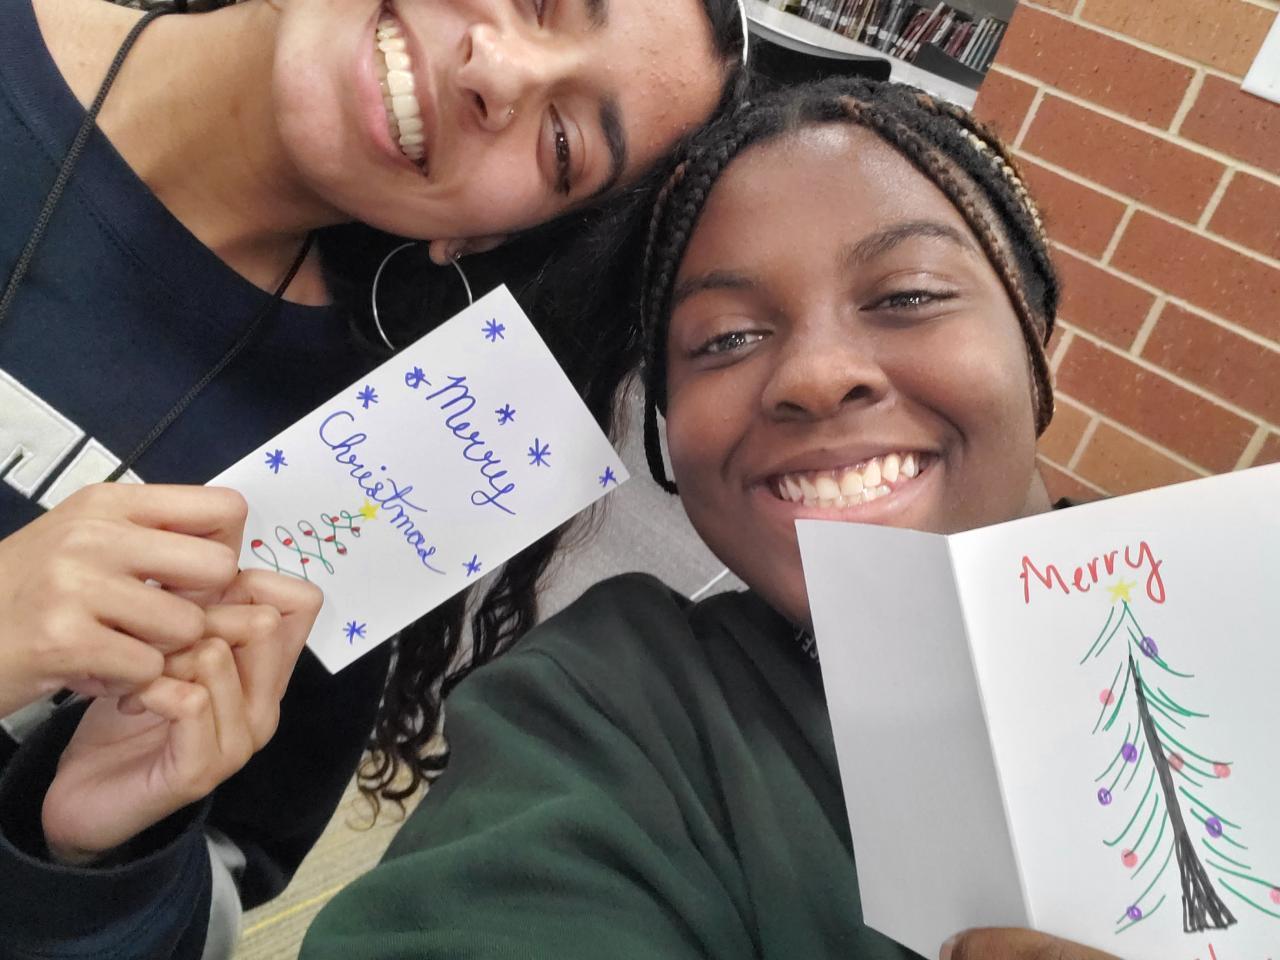 Merry
Christmas
Merry